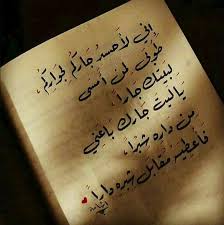 إني لأحسد جاركم لجواركم
طوبى لمن أمسى
لبيتك جارا
ياليت جارك باعني
من داره شبرا
فأعطيه مقابل شبره دارا